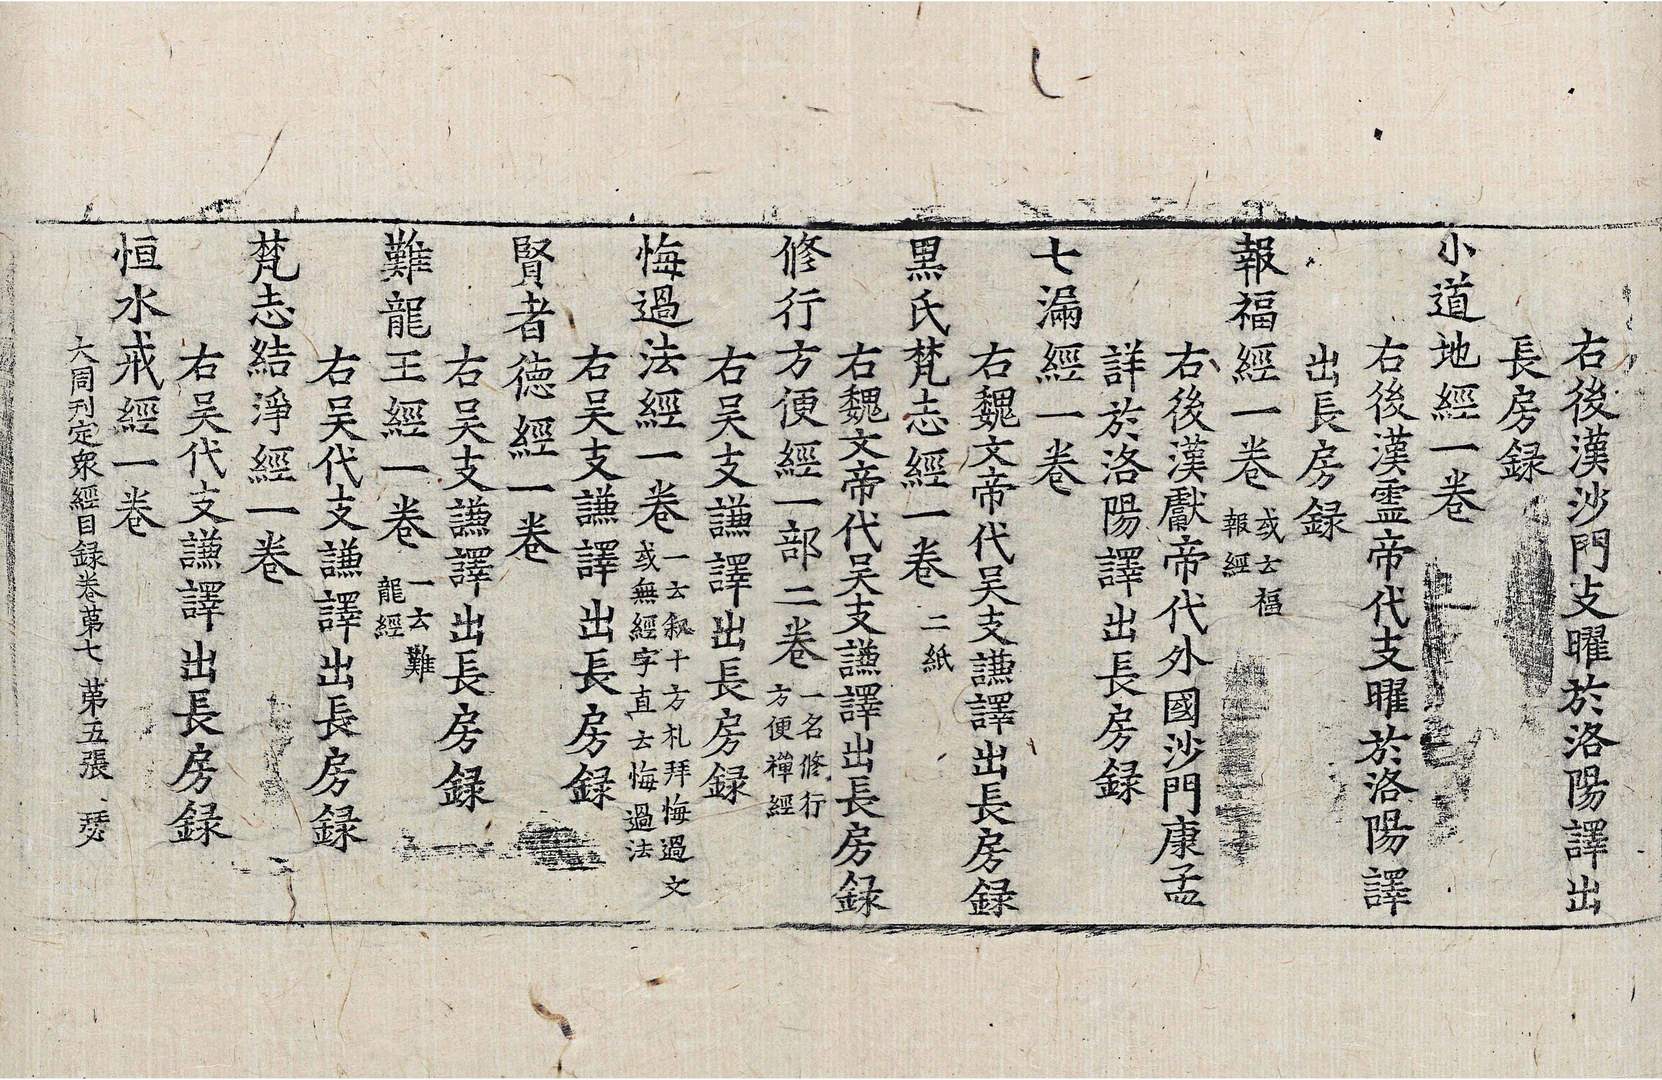 右後漢沙門支曜於洛陽譯出
長房録
小道地經一卷
右後漢靈帝代支曜於洛陽譯
出長房録
報福經一卷 或云福
報經
右後漢獻帝代外國沙門康孟
詳於洛陽譯出長房録
七漏經一卷
右魏文帝代吴支謙譯出長房録
黒氏梵志經一卷 二紙
右魏文帝代吴支謙譯出長房録
修行方便經一部二卷 一名修行
方便禪經
右吴支謙譯出長房録
悔過法經一卷 一云叙十方礼拜悔過文
或無經字直云悔過法
右吴支謙譯出長房録
賢者德經一卷
右吴支謙譯出長房録
難龍王經一卷 一云難
龍經
右吴代支謙譯出長房録
梵志結淨經一卷
右吴代支謙譯出長房録
恒水戒經一卷
大周刊定衆經目録卷苐七 苐五張 瑟